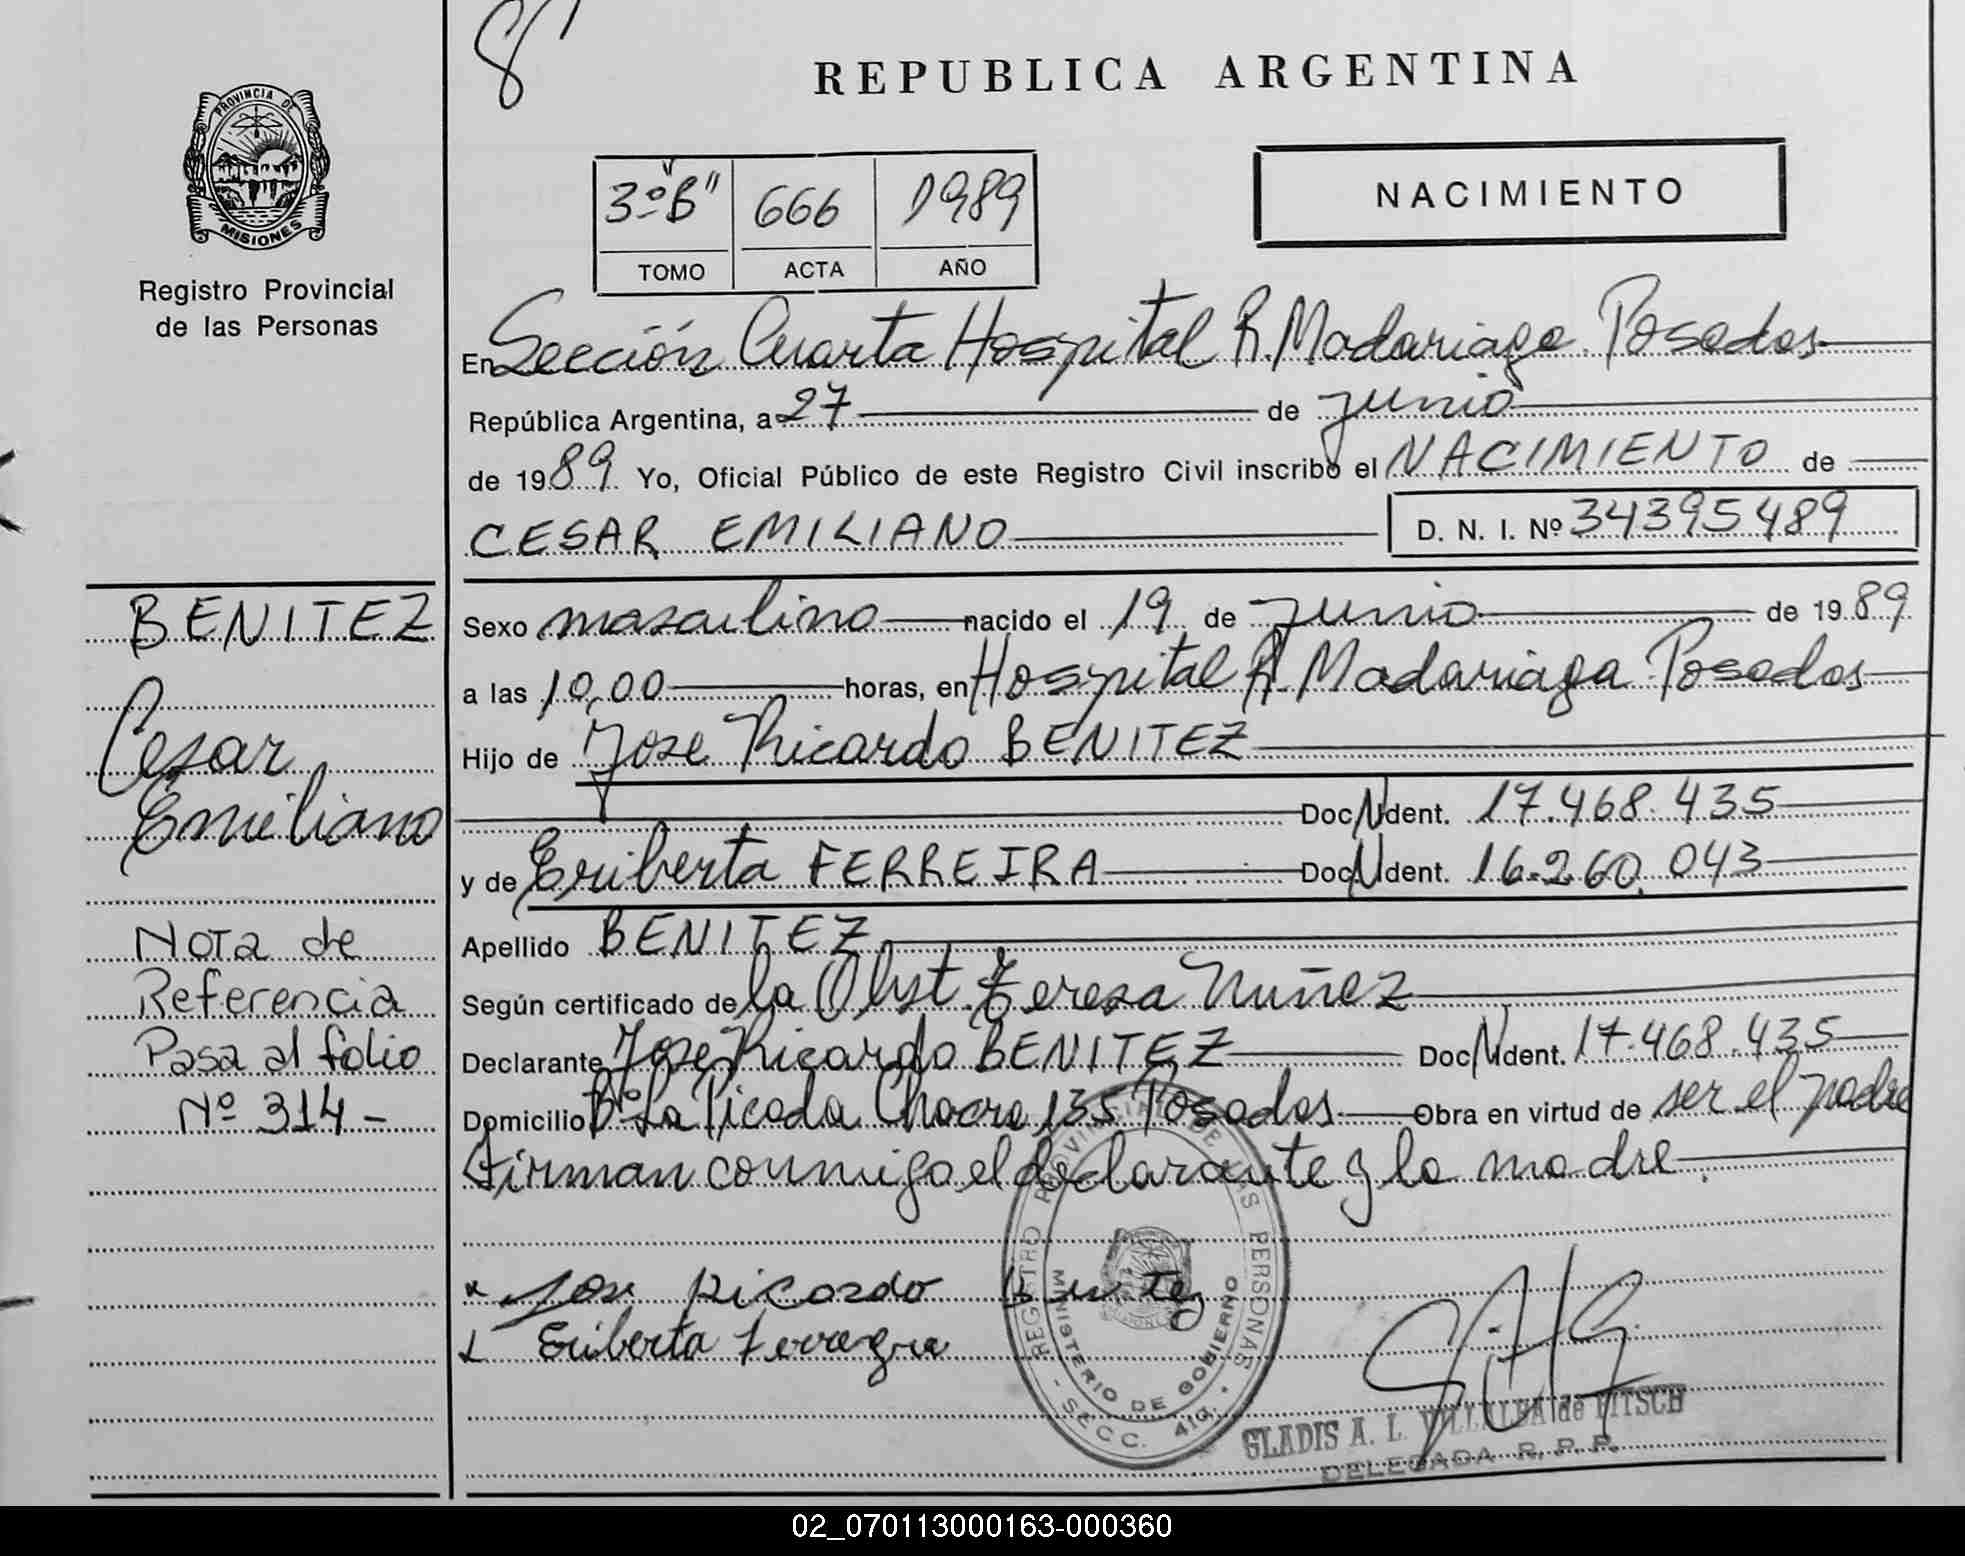 REPUBLICA ARGENTINA
PROVINCIA DE
MISIONES
Registro Provincial
de las Personas
3º "B" 666 1989
TOMO ACTA AÑO
NACIMIENTO
En Sección Cuarta Hospital R. Madariaga. Posadas
República Argentina, a 27 de junio
de 1989 Yo, Oficial Público de este Registro Civil inscribo el NACIMIENTO de
CESAR EMILIANO D. N. I. Nº 34395489
Sexo masculino nacido el 19 de junio de 1989
a las 10,00 horas, en Hospital R. Madariaga. Posadas
Hijo de Jose Ricardo BENITEZ
Doc. N Ident. 17.468.435
y de Eriberta FERREIRA Doc. N Ident. 16.260.043
Apellido BENITEZ
Según certificado de la Obst. Teresa Nuñez
Declarante Jose Ricardo BENITEZ Doc. N Ident. 17.468.435
Domicilio Bº La Picada Chacra 135 Posadas Obra en virtud de ser el padre
Firman conmigo el declarante y la madre.
Jose Ricardo Benitez
Eriberta Ferreyra
BENITEZ
Cesar
Emiliano
Nota de
Referencia
Pasa al folio
Nº 314 -
REGISTRO PROVINCIAL DE LAS PERSONAS
MINISTERIO DE GOBIERNO
- SECC. 4ta. -
GLADIS A. L. VILLALBA de FITSCH
DELEGADA R. P. P.
02_070113000163-000360